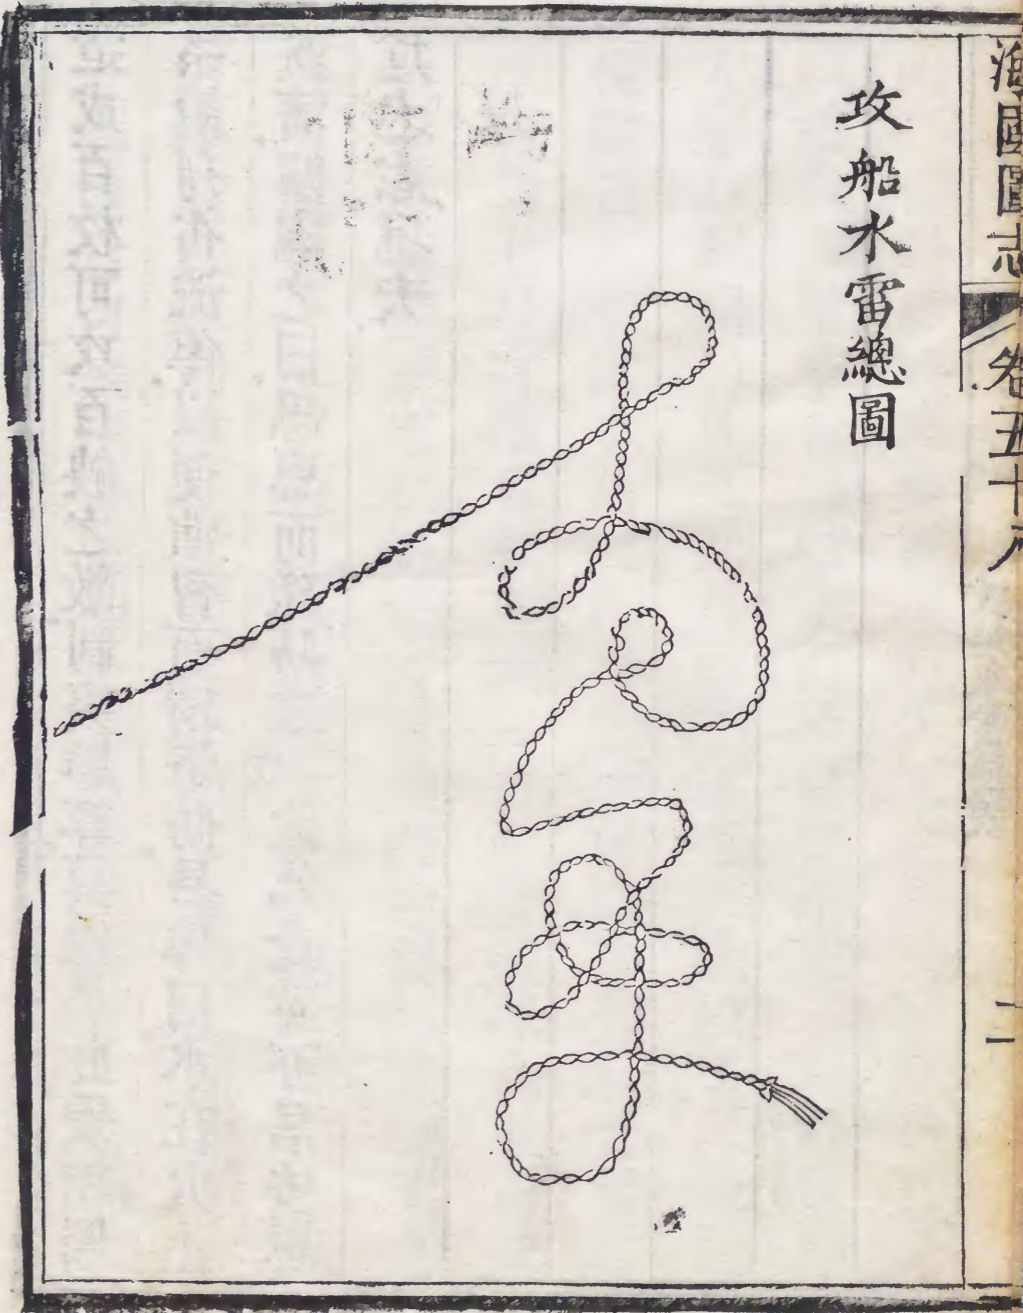 海國圖志 卷五十八
二
攻船水雷總圖